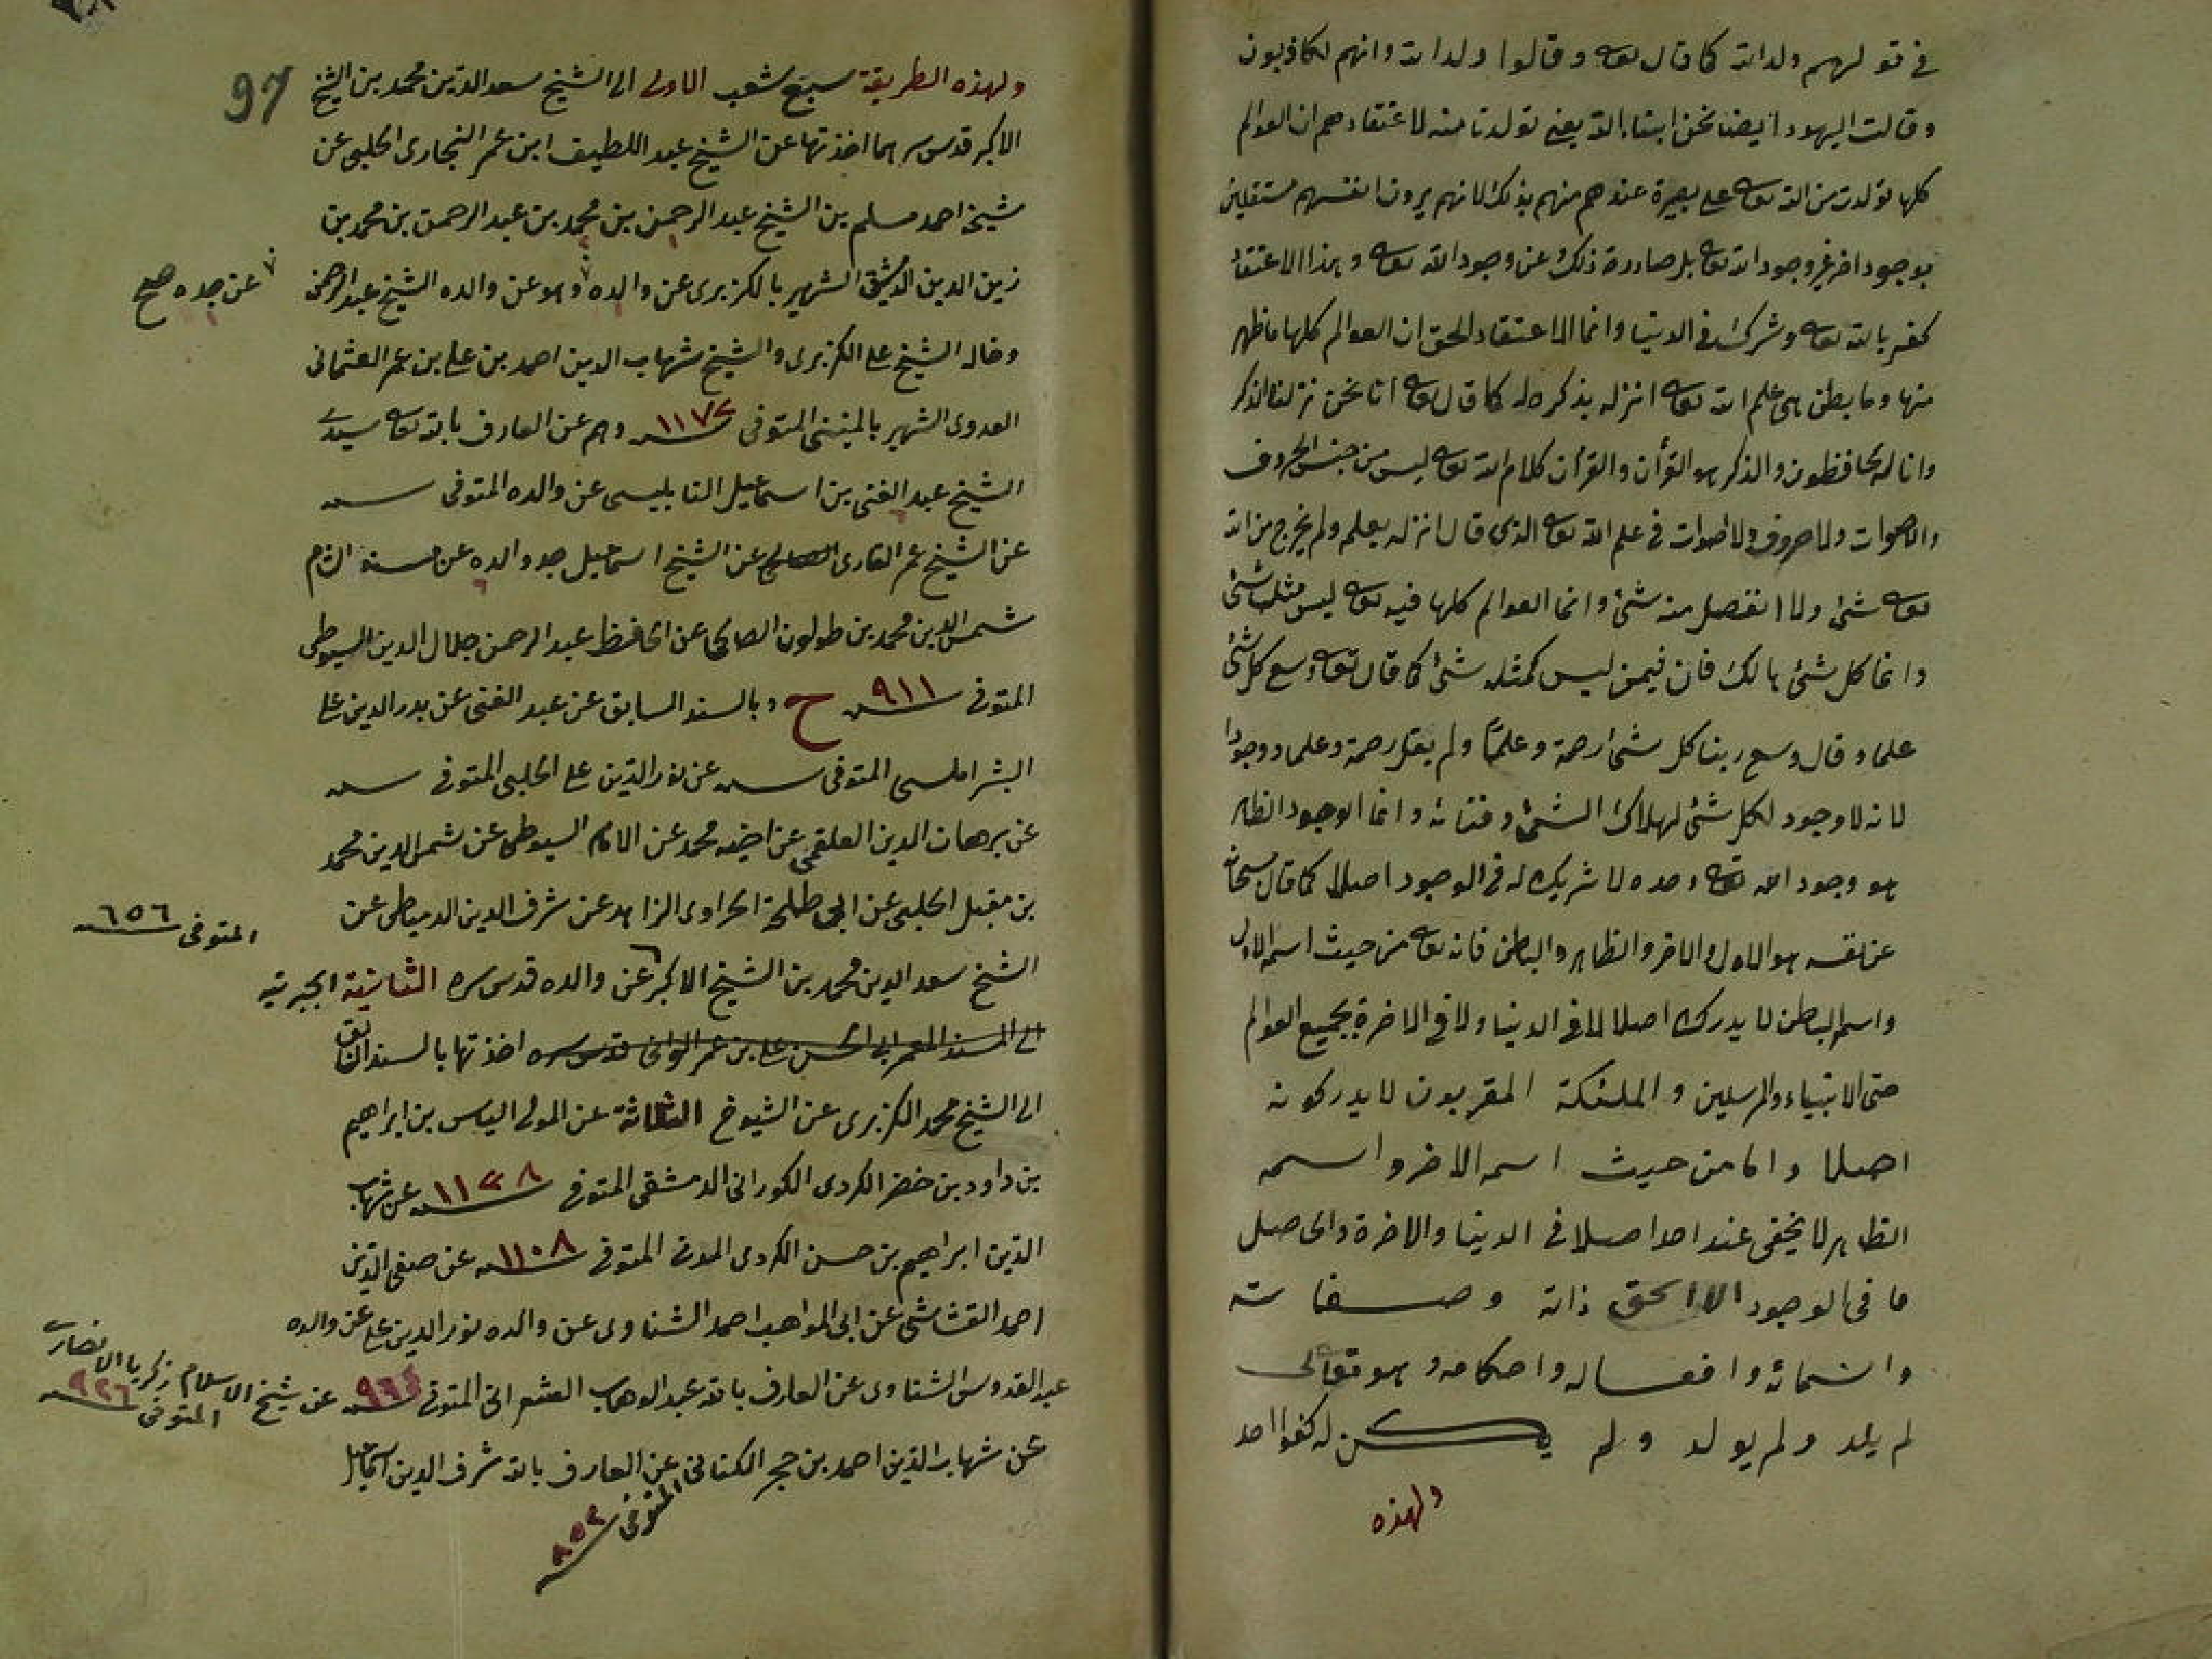 في قولهم ولد الله كما قال تعا وقالوا ولد الله وانهم لكاذبون
وقالت اليهود ايضا نحن ابناء الله يعني تولدنا منه لاعتقادهم ان العوالم
كلها تولدت من الله تعا على بصيرة عندهم منهم بذلك لانهم يرون انفسهم مستقلين
بوجود اخر غير وجود الله تعا بل صادرة ذلك عن وجود الله تعا وهذا الاعتقاد
كفر بالله تعا وشرك في الدنيا وانما الاعتقاد الحق ان العوالم كلها ما ظهر
منها وما بطن هي علم الله تعا انزله بذكره له كما قال تعا انا نحن نزلنا الذكر
وانا له لحافظون والذكر هو القرأن والقرأن كلام الله تعا ليس من جنس الحروف
والاصوات ولا حروف ولا اصوات في علم الله تعا الذي قال انزله بعلمه ولم يخرج من الله
تعا شئ ولا انفصل منه شئ وانما العوالم كلها فيه تعا ليس مثله شئ
وانما كل شئ هالك فان فيمن ليس كمثله شئ كما قال تعا وسع كل شئ
علما وقال وسع ربنا كل شئ رحمة وعلمًا ولم يقل رحمة وعلما ووجودا
لانه لا وجود لكل شئ لهلاك الشئ وفنائه وانما الوجود الظاهر
هو وجود الله تعا وحده لا شريك له في الوجود اصلا كما قال سبحانه
عن نفسه هو الاول والاخر والظاهر والباطن فانه تعا من حيث اسمه الاول
واسمه الباطن لا يدرك اصلا لا في الدنيا ولا في الاخرة بجميع العوالم
حتى الانبياء والمرسلين والملئكة المقربون لا يدركونه
اصلا واما من حيث اسمه الاخر واسمه
الظاهر لا يخفى عند احد اصلا في الدنيا والاخرة والحاصل
ما في الوجود الا الحق ذاته وصفاته
واسمائه وافعاله واحكامه وهو تعالى
لم يلد ولم يولد ولم يكن له كفوا احد
ولهذه
97
ولهذه الطريقة سبع شعب الاولى الى الشيخ سعد الدين محمد بن الشيخ
الاكبر قدس سرهما اخذتها عن الشيخ عبد اللطيف ابن عمر النجارى الحلبي عن
شيخه احمد مسلم بن الشيخ عبد الرحمن بن محمد بن عبد الرحمن بن محمد بن
زين الدين الدمشقي الشهير بالكزبرى عن والده وهو عن والده الشيخ عبد الرحمن
عن جده صح
وخاله الشيخ على الكزبرى والشيخ شهاب الدين احمد بن على بن عمر العثمانى
العدوى الشهير بالمنينى المتوفى سنه ١١٧٢ وهم عن العارف بالله تعا سيدى
الشيخ عبد الغنى بن اسماعيل النابلسى عن والده المتوفى سنه
عن الشيخ عمر القارى عن الشيخ اسماعيل جد والده عن مسند الشام
شمس الدين محمد بن طولون الصالحى عن الحافظ عبد الرحمن جلال الدين السيوطى
المتوفى سنه ٩١١ ح وبالسند السابق عن عبد الغنى عن بدر الدين على
الشبراملسى المتوفى سنه عن نور الدين على الحلبى المتوفى سنه
عن برهان الدين العلقمى عن اخيه محمد عن الامام السيوطى عن شمس الدين محمد
بن مقبل الحلبى عن ابى طلحة الحراوى الزاهد عن شرف الدين الدمياطى عن
المتوفى سنه ٦٥٦
الشيخ سعد الدين محمد بن الشيخ الاكبر عن والده قدس سره الثانية الجبرتيه
الى المسند المعمر ابى الحسن على بن عمر الوانى قدس سره اخذتها بالسند السابق
الى الشيخ محمد الكزبرى عن الشيوخ الثلاثة عن المولى الياس بن ابراهيم
بن داود بن خضر الكردى الكورانى الدمشقى المتوفى سنه ١١٣٨ عن شهاب
الدين ابراهيم بن حسن الكردى المدنى المتوفى سنه ١١٠٨ عن صفى الدين
احمد القشاشى عن ابى المواهب احمد الشناوى عن والده نور الدين على عن والده
عبد القدوس الشناوى عن العارف بالله عبد الوهاب الشعرانى المتوفى سنه عن شيخ الاسلام زكريا الانصارى
المتوفى سنه ٩٢٦
عن شهاب الدين احمد بن حجر الكنانى عن العارف بالله شرف الدين اسماعيل
المتوفى سنه ٨٥٢